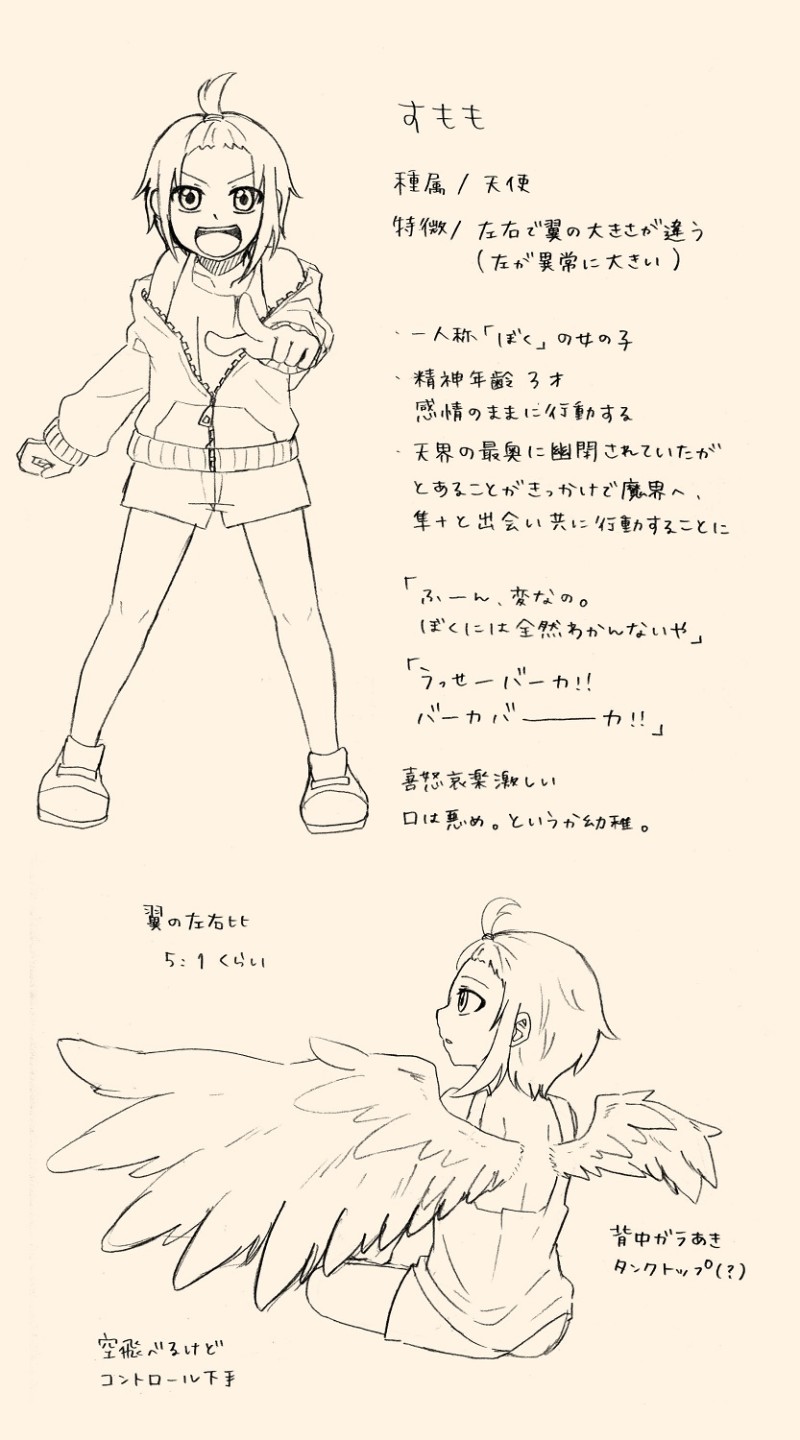 すもも
種属 / 天使
特徴/ 左右で翼の大きさが違う
(左が異常に大きい)
・一人称「ぼく」の女の子
・精神年齢 3才
感情のままに行動する
・天界の最奥に幽閉されていたが
とあることがきっかけで魔界へ、
隼十と出会い共に行動することに
「ふーん、変なの。
ぼくには全然わかんないや」
「うっせーバーカ!!
バーカバ――――カ!!」
喜怒哀楽激しい
口は悪め。というか幼稚。
翼の左右比
5:1くらい
背中ガラあき
タンクトップ(?)
空飛べるけど
コントロール下手